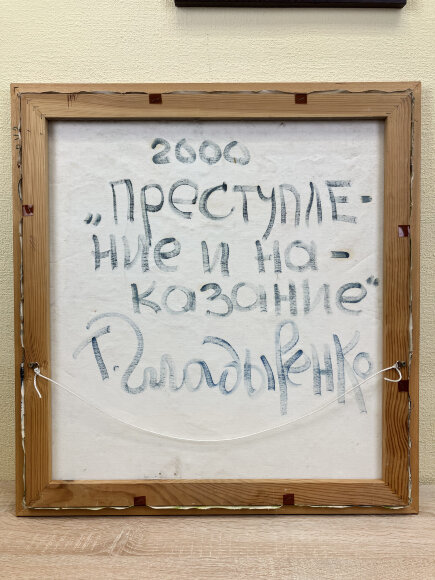 2000
„Преступле-
ние и на-
казание"
Г. Гладыренко